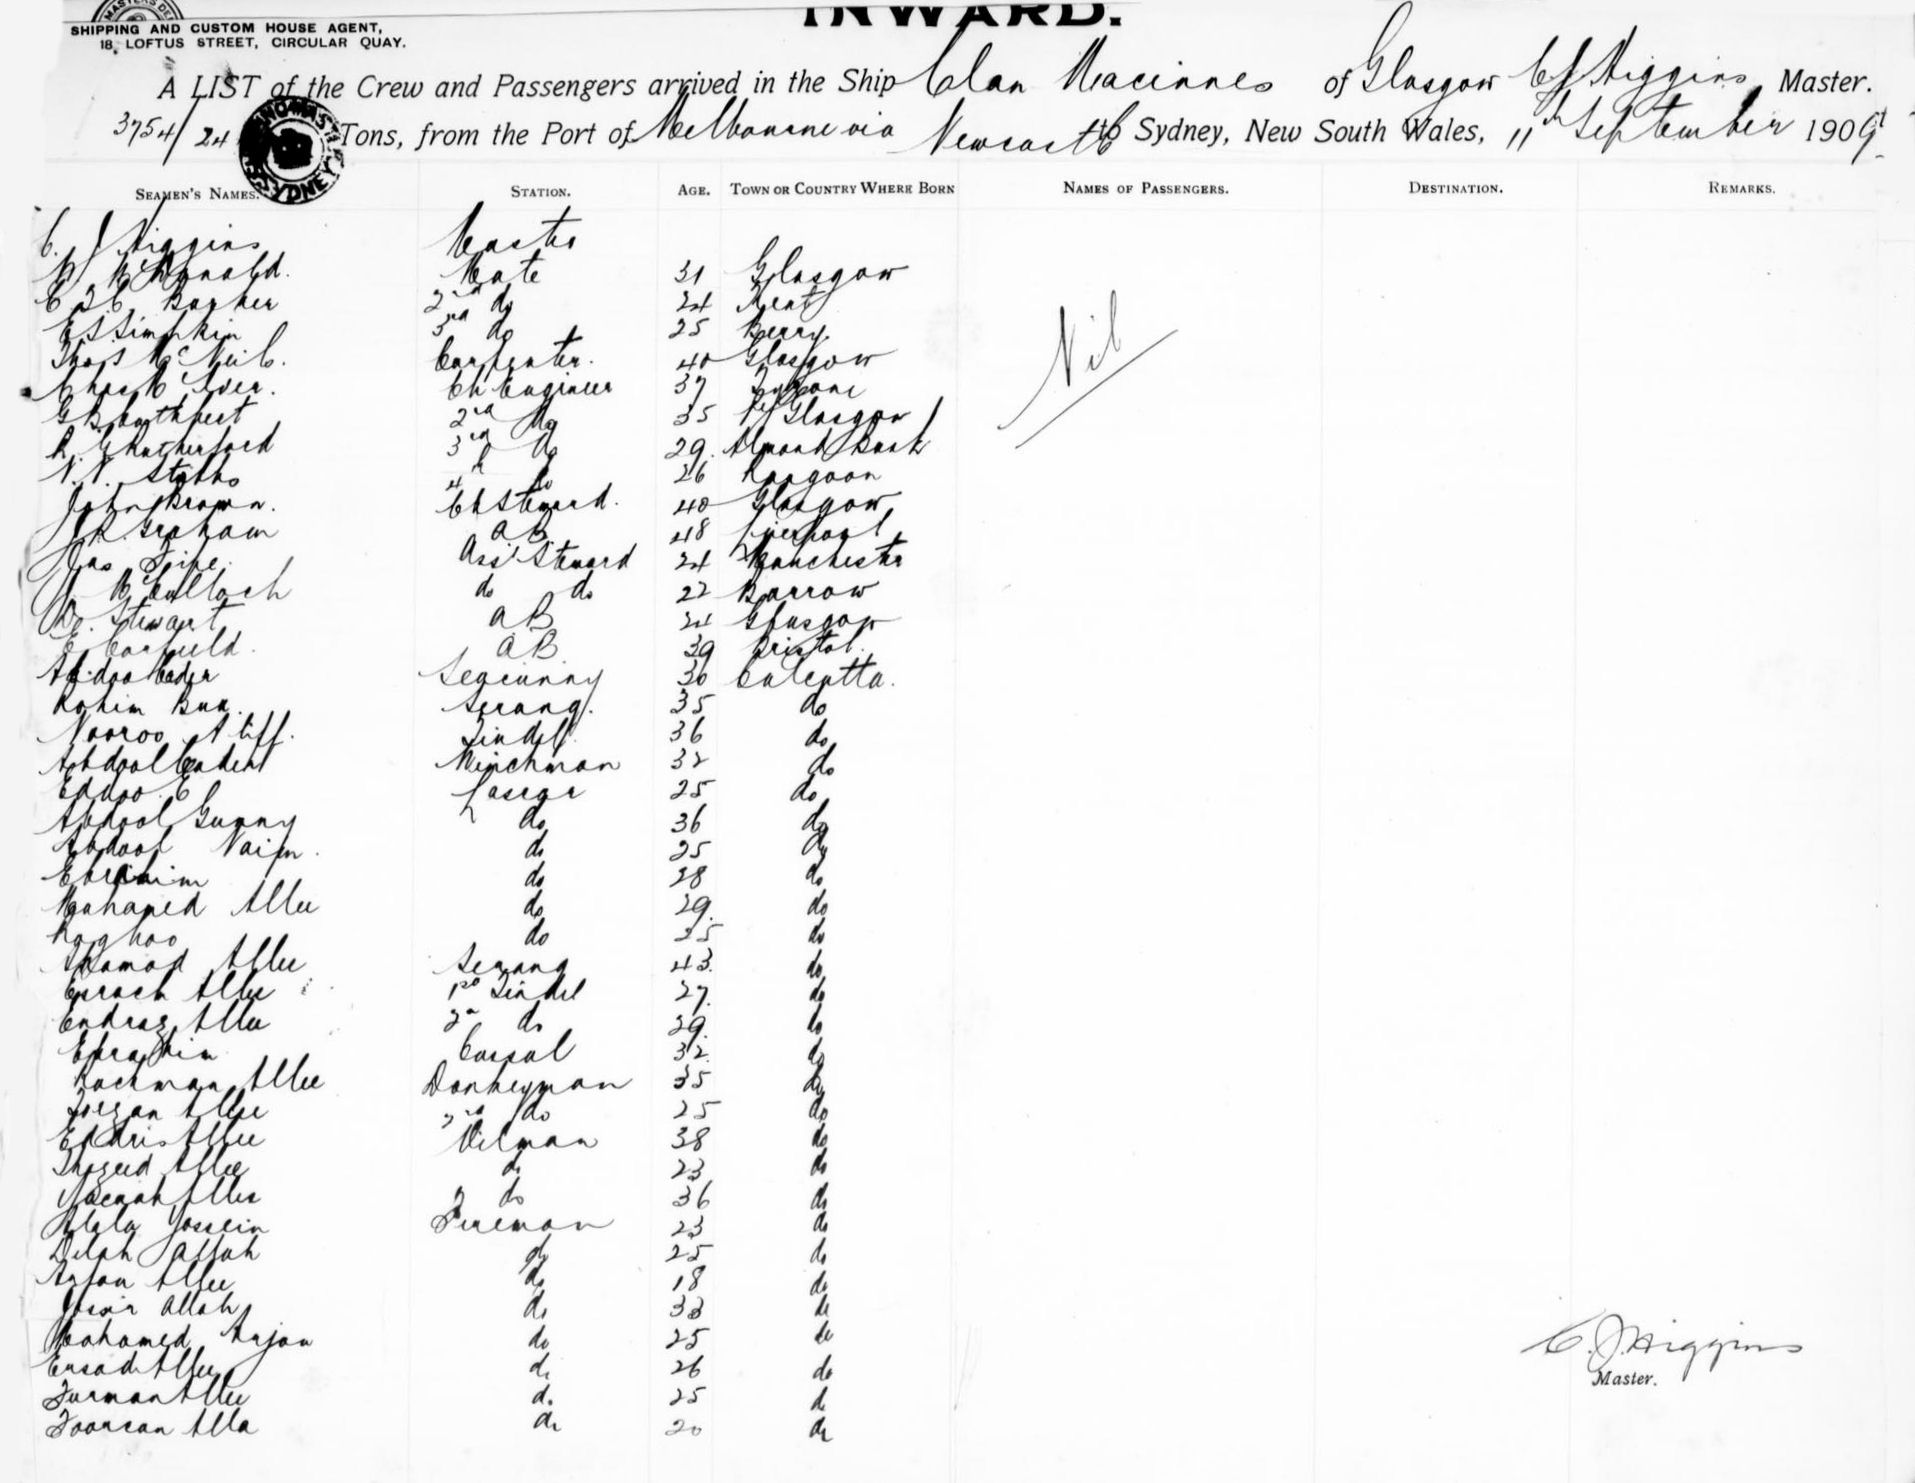 INWARD.
SHIPPING AND CUSTOM HOUSE AGENT,
18, LOFTUS STREET, CIRCULAR QUAY.
A LIST of the Crew and Passengers arrived in the Ship Clan Macinnes of Glasgow C J Higgins, Master.
3754/24 Tons, from the Port of Melbourne via Newcastle to Sydney, New South Wales, 11th September 1909
SEAMEN'S NAMES. STATION. AGE. TOWN OR COUNTRY WHERE BORN NAMES OF PASSENGERS. DESTINATION. REMARKS.
C. J Higgins Master
McDonald. Mate 31 Glasgow
Barker 2nd do 24 Kent
E S Simpkin 3rd do 25 Berry
Thos McNeil. Carpenter. 40 Glasgow
Nil
Chas McIver. Ch Engineer 37
G Bouthfeet 2nd do 35 Pt Glasgow
R. G Rutherford 3rd do 29. Almond Bank
Stobbs 4th do 26 Rangoon
John Brown. Ch Steward. 40 Glasgow
Graham AB 48 Liverpool
Jas Fife. Asst Steward 24 Manchester
J. McCulloch do do 22 Barrow
Stewart AB 24 Glasgow
E Canfield. AB 39 Bristol.
30 Calcutta.
Rohim Bux. Serang. 35 do
Nooroo Aliff. Tindel 36 do
Abdool Winchman 32 do
Eddoo Lascar 25 do
Abdool Gunny do 36 do
Abdool Naim. do 25 do
Ebrahim do 28 do
Mohamed Allee do 29. do
Roghoo do 25 do
Shamad Allee Serang 43. do
Allee 1st Tindel 27. do
Allee 2nd do 29. do
Ebrahim Cassab 32. do
Rochman Allee Donkeyman 35 do
Allee 2nd do 25 do
Eddris Allee Oilman 38 do
Allee do 23 do
Allee do 36 do
Yossein Fireman 23 do
Allah do 25 do
Allee do 18 do
Allah do 33 do
Mohamed Arjon do 25 do
C. J. Higgins
Master.
Ersad Allee do 26 do
Furman Allee do 25 do
Alla do 20 do